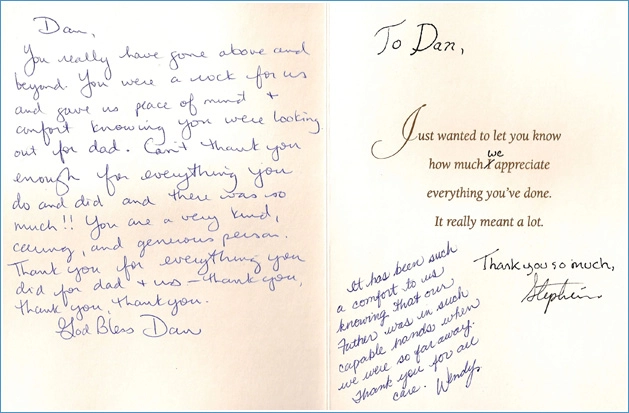 Dan,
You really have gone above and
beyond. You were a rock for us
and gave us peace of mind +
comfort knowing you were looking
out for dad. Can't thank you
enough for everything you
do and did and there was so
much!! You are a very kind,
caring, and generous person.
Thank you for everything you
did for dad + us - thank you,
thank you, thank you.
God Bless Dan
To Dan,
Just wanted to let you know
how much we appreciate
everything you've done.
It really meant a lot.
Thank you so much,
Stephen
It has been such
a comfort to us
knowing that our
Father was in such
capable hands when
we were so far away.
Thank you for all
care. Wendy